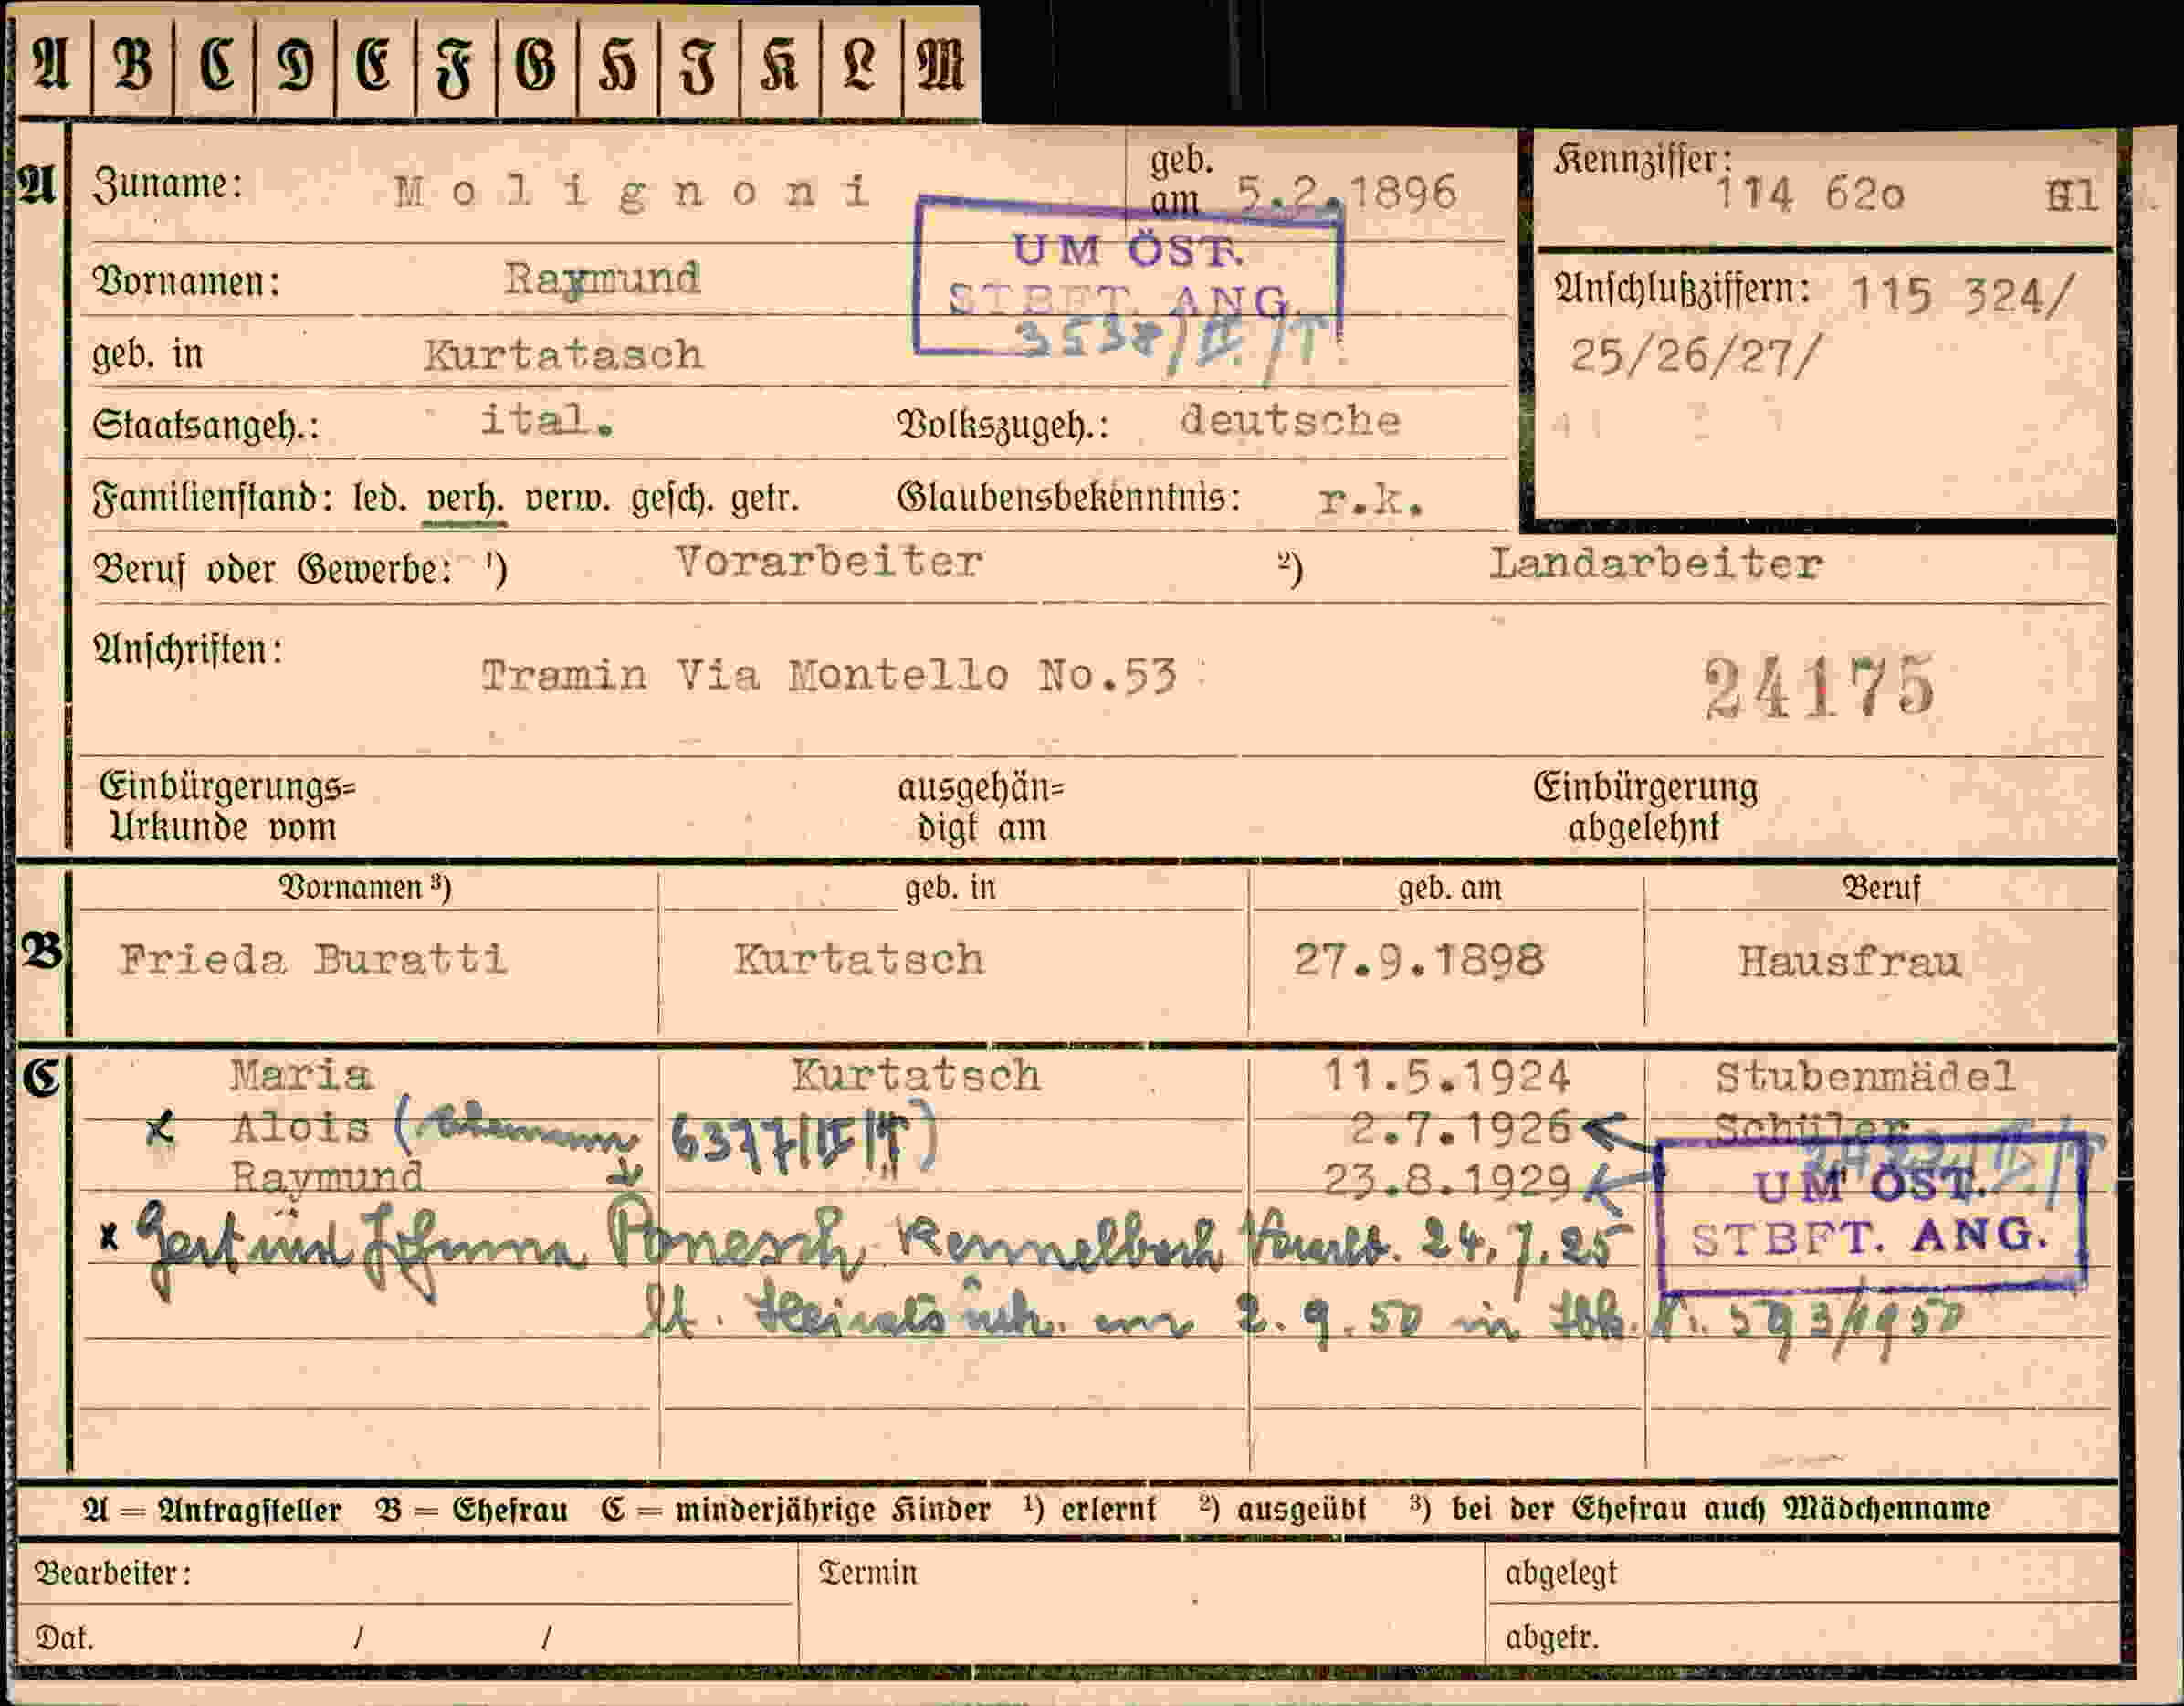 A B C D E F G H I K L M
A Zuname: Molignoni geb. am 5.2.1896 Kennziffer: 114 62o
UM ÖST.
STBFT. ANG.
3538/II./T.
Vornamen: Raymund Anschlußziffern: 115 324/
geb. in Kurtatasch 25/26/27/
Staatsangeh.: ital. Volkszugeh.: deutsche
Familienstand: led. verh. verw. gesch. getr. Glaubensbekenntnis: r.k.
Beruf oder Gewerbe: ¹) Vorarbeiter ²) Landarbeiter
Anschriften: Tramin Via Montello No.53 24175
Einbürgerungs= ausgehän= Einbürgerung
Urkunde vom digt am abgelehnt
Vornamen ³) geb. in geb. am Beruf
B Frieda Buratti Kurtatsch 27.9.1898 Hausfrau
C Maria Kurtatsch 11.5.1924 Stubenmädel
x Alois ( 6377/II/T) 2.7.1926 Schüler
Raymund 23.8.1929
UM ÖST.
STBFT. ANG.
x Johanna Kennelbach 24.7.25
lt. am 2.9.50 in 593/1950
A = Antragsteller B = Ehefrau C = minderjährige Kinder ¹) erlernt ²) ausgeübt ³) bei der Ehefrau auch Mädchenname
Bearbeiter: Termin abgelegt
Dat. / / abgetr.